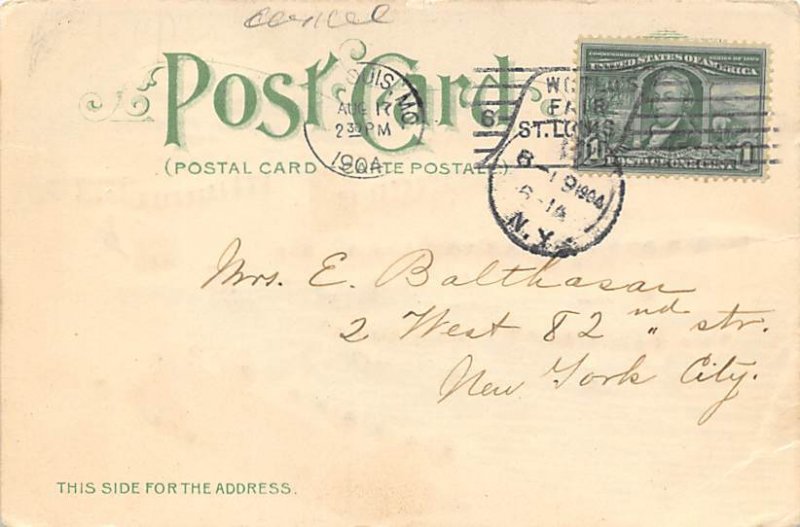 cancel
Post Card
(POSTAL CARD - CARTE POSTALE)
LOUIS, MO.
AUG 17
2 30 PM
1904
6
WORLD'S
FAIR
ST. LOUIS
UNITED STATES OF AMERICA
1 POSTAGE ONE CENT 1
8-19 1904
N.Y.
Mrs. E. Balthasar
2 West 82nd " str.
New York City.
THIS SIDE FOR THE ADDRESS.